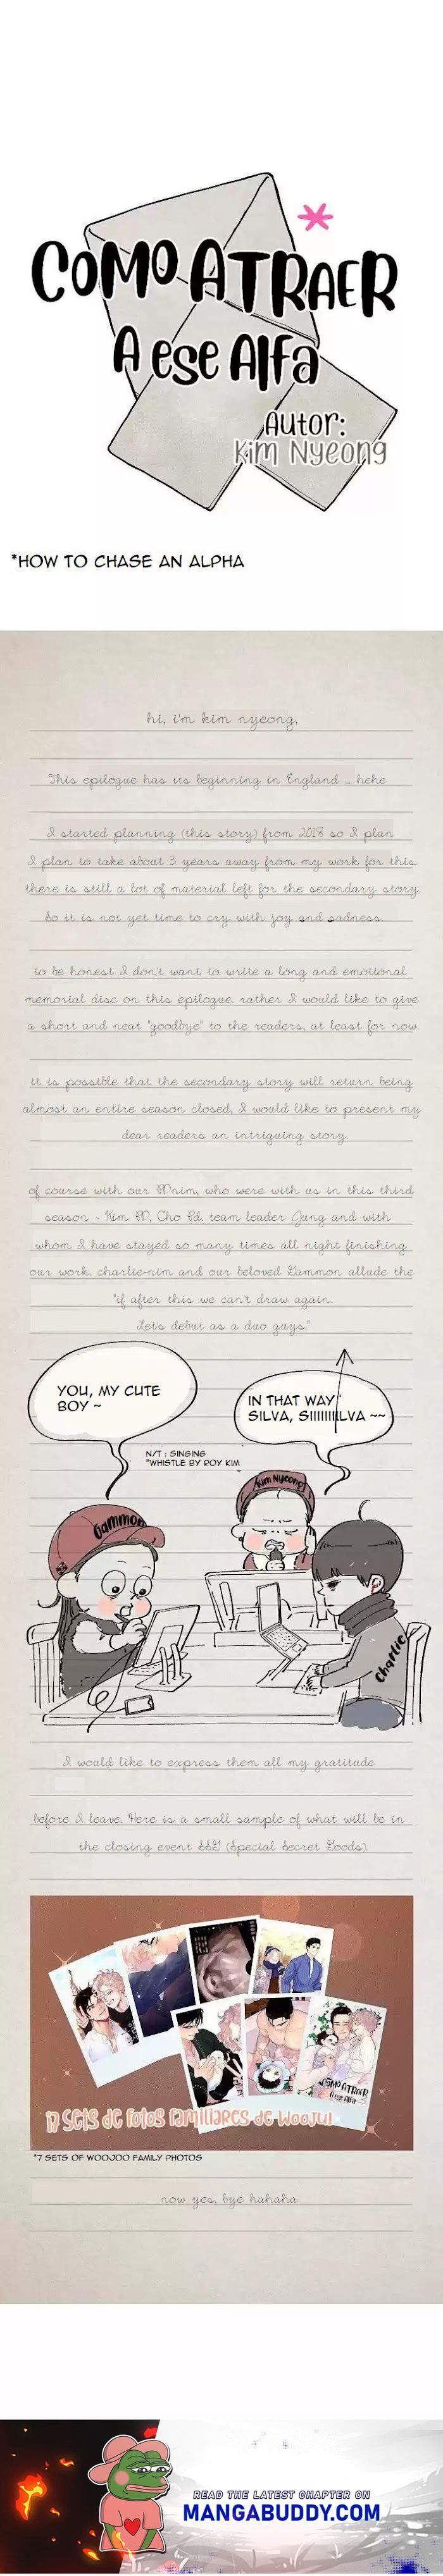 COMO ATRAER
A ese Alfa
Autor:
Kim Nyeong
*HOW TO CHASE AN ALPHA
hi, i'm kim nyeong,
This epilogue has its beginning in England ... hehe
I started planning (this story) from 2018 so I plan
I plan to take about 3 years away from my work for this.
there is still a lot of material left for the secondary story.
So it is not yet time to cry with joy and sadness.
to be honest I don't want to write a long and emotional
memorial disc on this epilogue. rather I would like to give
a short and neat "goodbye" to the readers, at least for now.
it is possible that the secondary story will return being
almost an entire season closed, I would like to present my
dear readers an intriguing story.
of course with our PDnim, who were with us in this third
season - Kim PD, Cho Pd. team leader Jung and with
whom I have stayed so many times all night finishing
our work. charlie-nim and our beloved Gammon allude the
"if after this we can't draw again.
Let's debut as a duo guys."
YOU, MY CUTE
BOY ~
IN THAT WAY
SILVA, SIIIIIIILVA ~~
N/T : SINGING
"WHISTLE BY ROY KIM
Gammon
Kim Nyeong
Charlie
I would like to express them all my gratitude
before I leave. Here is a small sample of what will be in
the closing event SSG (Special Secret Goods).
COMO ATRAER
A ese Alfa
17 sets de fotos familiares de Wooju!
*7 SETS OF WOOJOO FAMILY PHOTOS
now yes, bye hahaha
READ THE LATEST CHAPTER ON
MANGABUDDY.COM